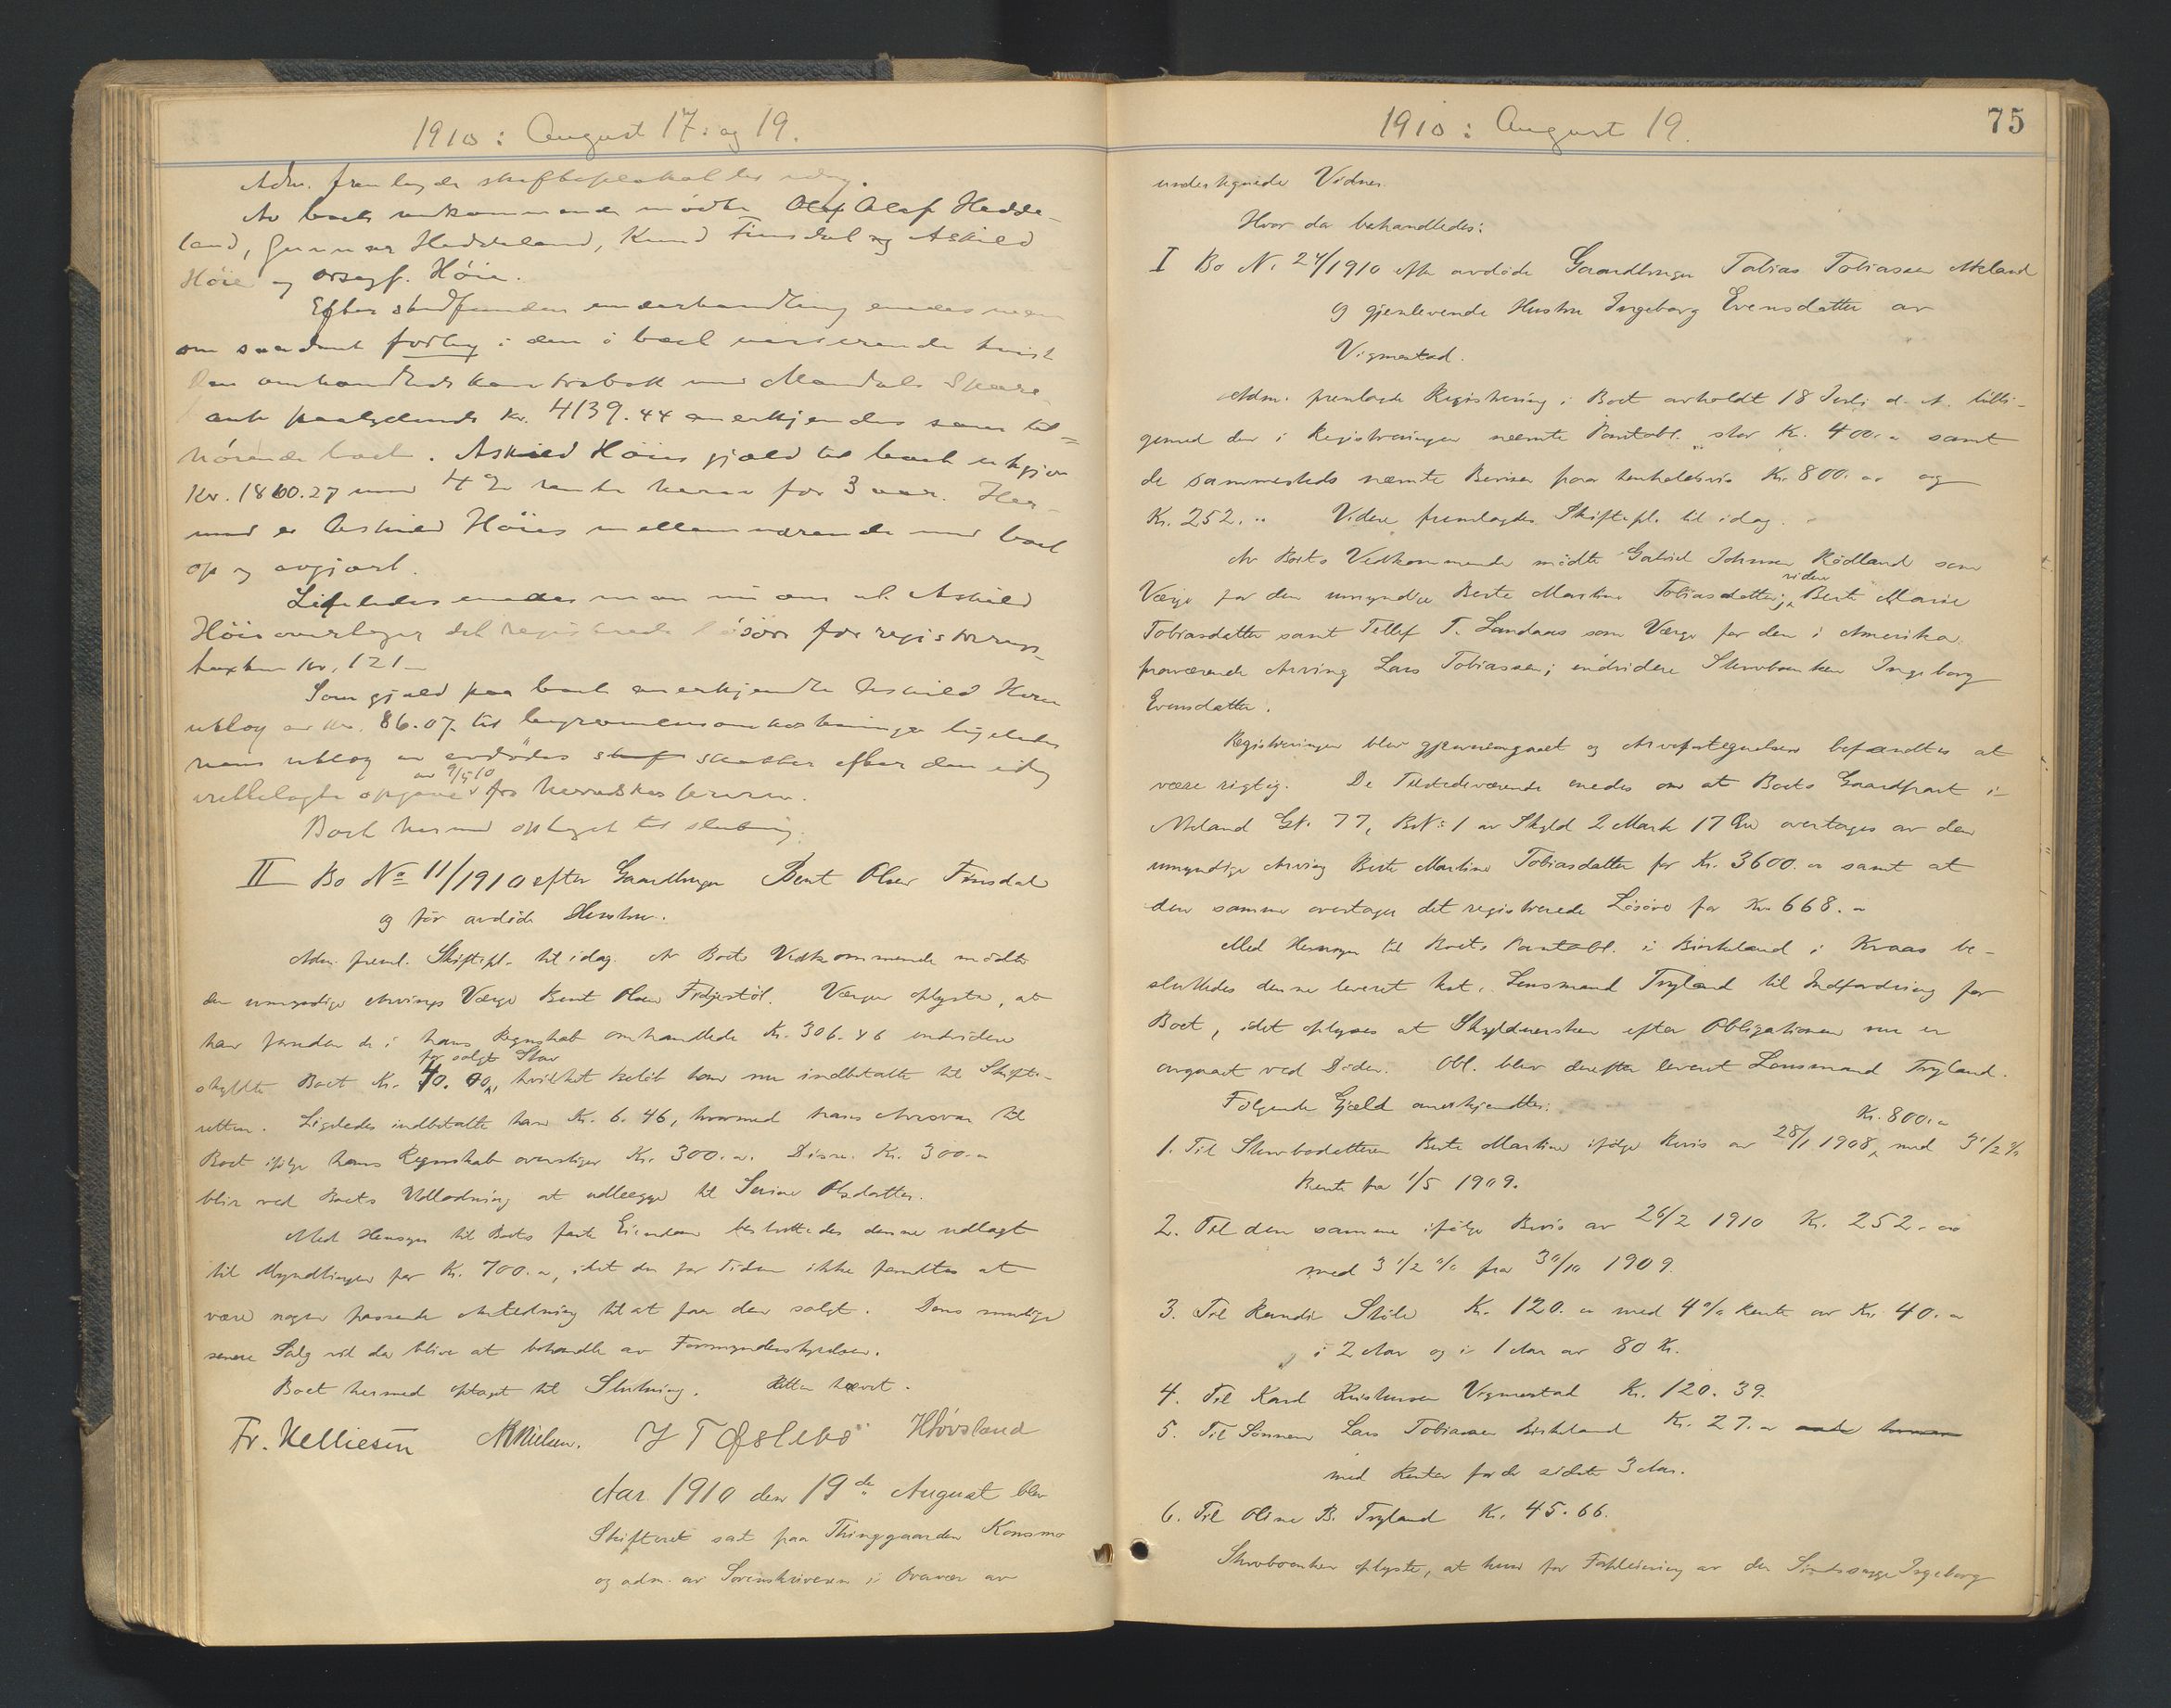 1910: August 17. og 19.
Adm. fremlagde skifteprotokol til idag.
Av boets vedkommende mødte Olaf Olaf Hedde-
land, Gunnar Heddeland, Knud Finsdal og Askild
Höie og orsagf. Höie.
Efter stedfunden underhandling enedes man
om saadant forlig i den i boet verserende tvist
Den omhandlede kontrabok med Mandals Spare-
bank paalydende kr. 4139.44 anerkjendes som til-
hörende boet. Askild Höies gjæld til boet utgjør
Kr. 1860.27 med 4 % rente herav for 3 aar. Her-
med er Askild Höies mellemværende med boet
op og avgjort.
Ligeledes enedes man om at Askild
Höie overtager det registrerede lösöre for registrerings-
taxten kr. 121 -
Som gjæld paa boet anerkjendte Askild Höies
utlæg av kr. 86.07 til begravelsesomkostninger ligeledes
hans utlæg av avdödes skatter efter den idag
fremlagte opgave av 9/5 10 fra herredskassereren.
Boet hermed optaget til slutning.
II Bo No 11/1910 efter Gaardbruger Bent Olsen Finsdal
og før avdöde Hustru.
Adm. freml. Skiftepl. til idag. Av Boets Vedkommende mödte
den umyndige Arvings Værge Bent Olsen Fidjestöl. Værgen oplyste, at
han foruden de i hans Regnskab omhandlede Kr. 306.46 endvidere
skyldte Boet Kr. 40.00, for solgt Stav hvilket Belöb han nu indbetalte til Skifte-
retten. Ligeledes indbetalte han Kr. 6.46, hvormed hans Ansvar til
Boet ifølge hans Regnskab overstiger Kr. 300.-. Disse Kr. 300.-
blir ved Boets Utlodning at udlægge til Serine Olsdatter.
Med Hensyn til Boets faste Eiendom besluttedes denne udlagt
til Myndlingen for Kr. 700.-, idet der for Tiden ikke fandtes at
være nogen passende Anledning til at faa den solgt. Dens mulige
senere Salg vil da blive at behandle av Formynderstyrelsen.
Boet hermed optaget til Slutning. Retten hævet.
Fr. Nelliesen
Aar 1910 den 19de August blev
Skifteret sat paa Thinggaarden Konsmo
og adm. av Sorenskriveren i Overvær av
1910: August 19.
75
undertegnede Vidner.
Hvor da behandledes:
I Bo N. 24/1910 efter avdöde Gaardbruger Tobias Tobiassen Meland
og gjenlevende Hustru Ingeborg Evensdatter av
Vigmostad.
Adm. fremlagde Registrering i Boet avholdt 18 Juli d. A. tilli-
gemed den i Registreringen nævnte Pantobl. stor Kr. 400.- samt
de sammesteds nævnte Beviser paa henholdsvis Kr. 800.- og
Kr. 252.- Videre fremlagdes Skiftepl. til idag.
Av Boets Vedkommende mödte Gabriel Johnsen Rödland som
Værge for den umyndige Berte Martine Tobiasdatter; videre Berte Marie
Tobiasdatter samt Tellef T. Landaas som Værge for den i Amerika
fraværende Arving Lars Tobiassen; endvidere Stervboenken Ingeborg
Evensdatter.
Registreringen blev gjennemgaaet og Arvefortegnelsen befandtes at
være rigtig. De Tilstedeværende enedes om at Boets Gaardpart i
Meland Gr. 77, Br.N. 1 av Skyld 2 Mark 17 Öre overtages av den
umyndige Arving Berte Martine Tobiasdatter for Kr. 3600.- samt at
den samme overtager det registrerede Lösöre for Kr. 668.-
Med Hensyn til Boets Pantobl. i Birkeland i Kvaas be-
sluttedes denne leveret kst. Lensmand Tryland til Indfordring for
Boet, idet oplyses at Skyldnersken efter Obligationen nu er
avgaaet ved Döden. Obl. blev derefter leveret Lensmand Tryland.
Følgende Gjæld anerkjendtes:
1. Til Stervbodatteren Berte Martine ifölge Bevis av 28/1 1908, Kr. 800.- med 3 1/2 %
Rente fra 1/5 1909.
2. Til den samme ifölge Bevis av 26/2 1910 Kr. 252.-
med 3 1/2 % fra 30/10 1909.
3. Til Kandi Stöle Kr. 120.- med 4 % Rente av Kr. 40.-
i 2 Aar og i 1 Aar av 80 Kr.
4. Til Karl Kristensen Vigmostad Kr. 120.39.
5. Til Sønnen Lars Tobiassen Birkeland Kr. 27.-
med Renter for de sidste 3 Aar.
6. Til Oline B. Tryland Kr. 45.66.
Stervboenken oplyste, at hun for Forpleining av den Sindssyge Ingeborg